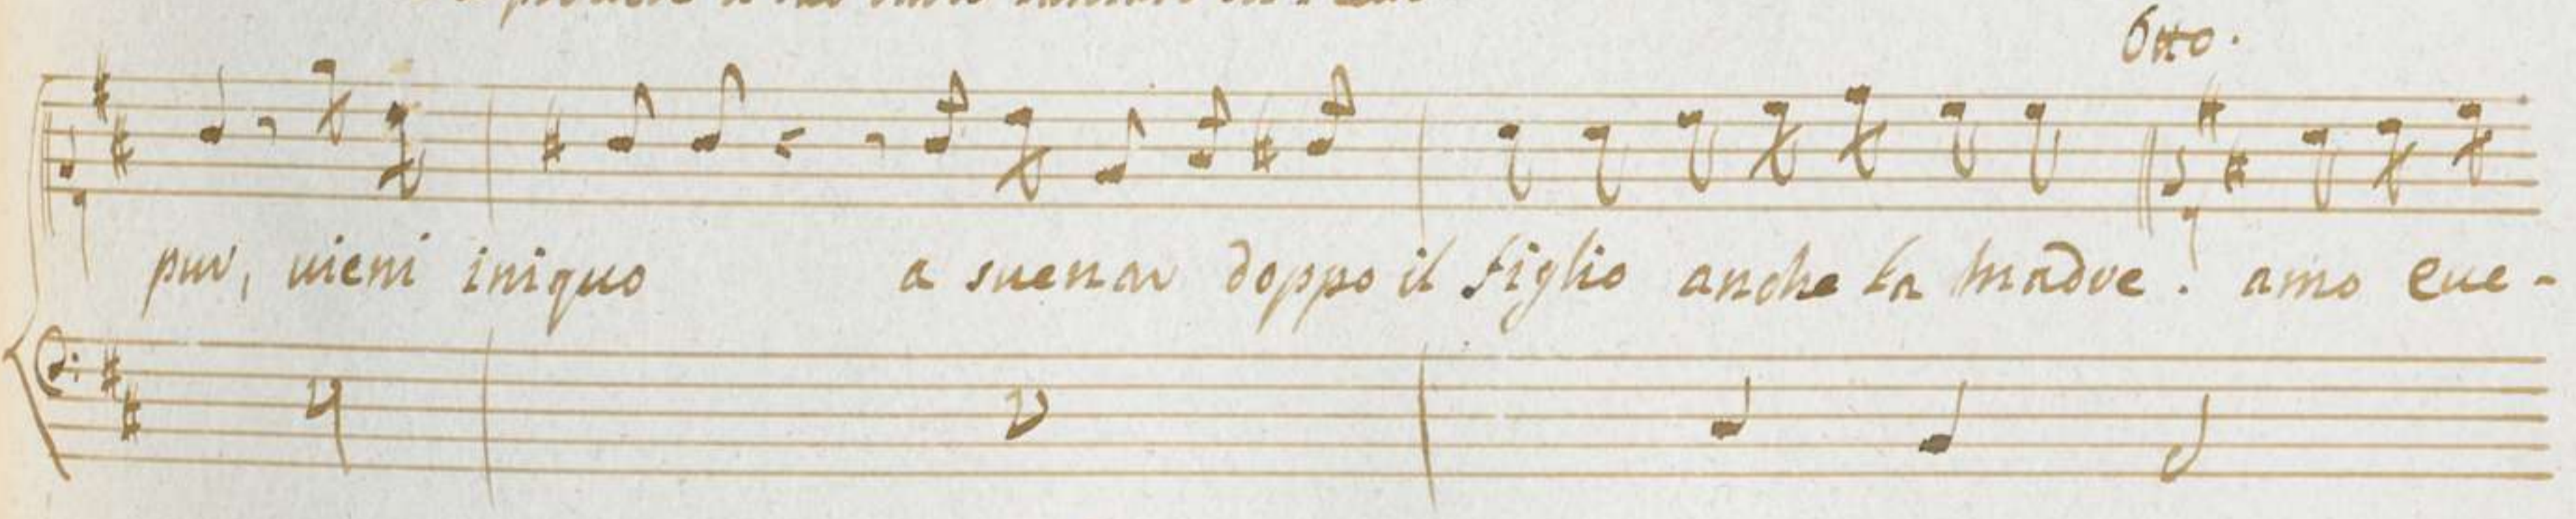 Otto.
pur, uieni iniquo a suenar doppo il figlio anche la madre. amo eue-